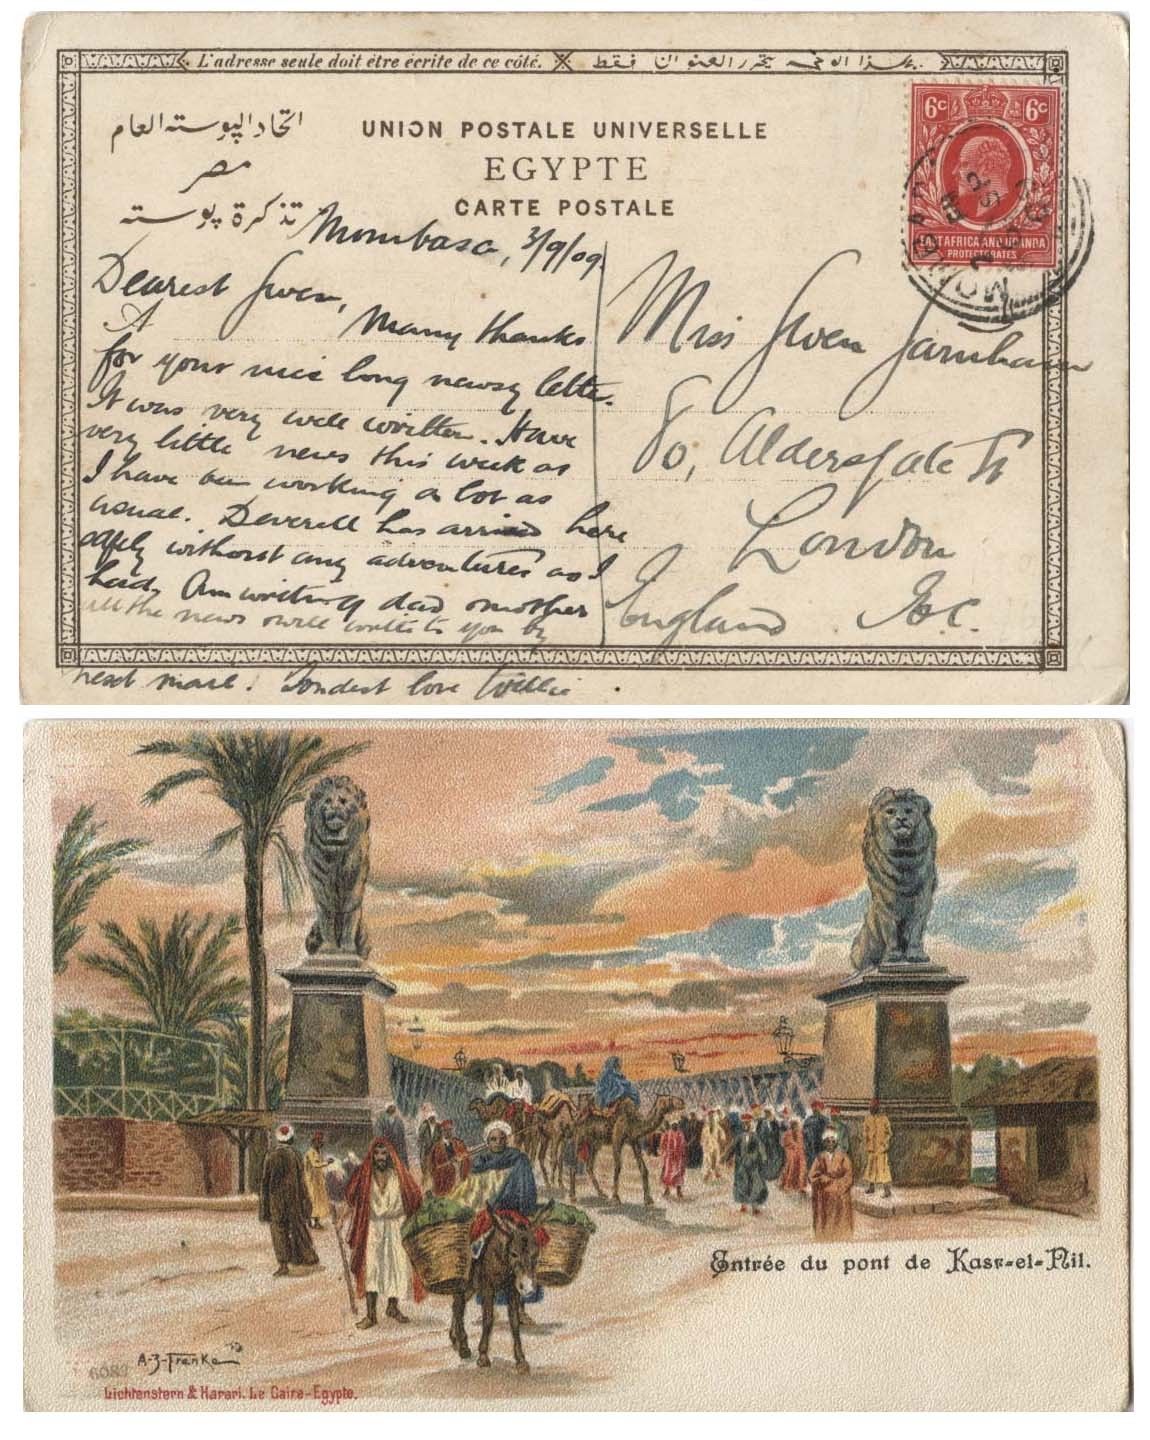 L'adresse seule doit être écrite de ce côté.
فقط
اتحاد البوسته العام
مصر
تذكرة بوسته
UNION POSTALE UNIVERSELLE
EGYPTE
CARTE POSTALE
6c 6c
EAST AFRICA AND UGANDA
PROTECTORATES
Mombasa, 3/9/09.
Dearest Gwen,
Many thanks
for your nice long newsy letter.
It was very well written. Have
very little news this week as
I have been working a lot as
usual. Deverell has arrived here
safely without any adventures as I
had. Am writing dad & mother
all the news & will write to you by
next mail. Fondest love Willie
Miss Gwen Jarnham
80, Aldersgate St
London
England E.C.
Entrée du pont de Kasr-el-Nil.
A-Z-Franke
6083
Lichtenstern & Harari. Le Caire-Egypte.